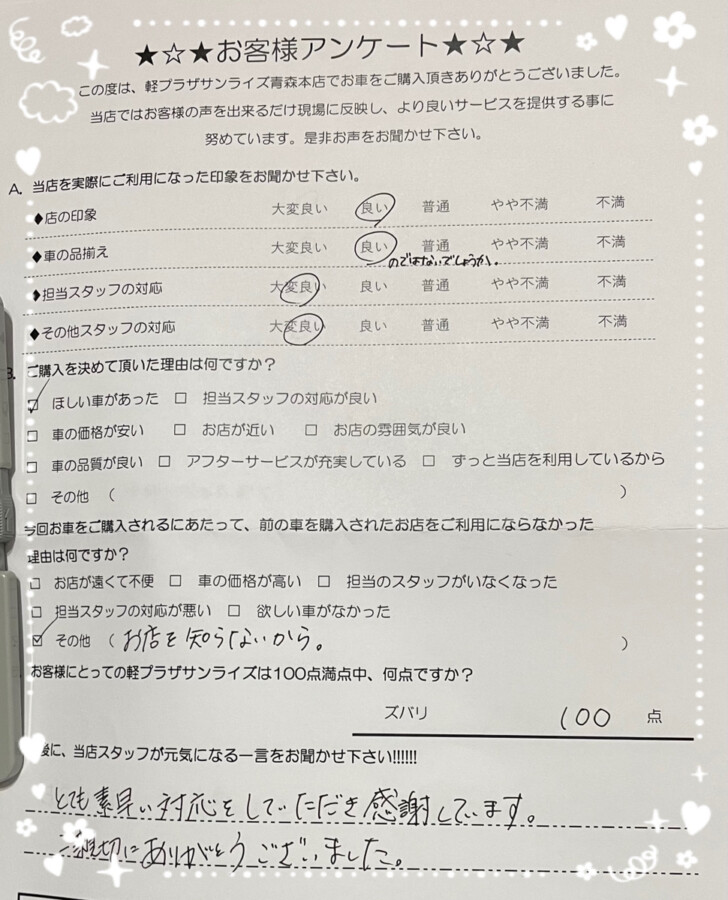 ★☆★お客様アンケート★☆★
この度は、軽プラザサンライズ青森本店でお車をご購入頂きありがとうございました。
当店ではお客様の声を出来るだけ現場に反映し、より良いサービスを提供する事に
努めています。是非お声をお聞かせ下さい。
A. 当店を実際にご利用になった印象をお聞かせ下さい。
◆店の印象 大変良い 良い 普通 やや不満 不満
◆車の品揃え 大変良い 良い 普通 やや不満 不満
のではないでしょうか。
◆担当スタッフの対応 大変良い 良い 普通 やや不満 不満
◆その他スタッフの対応 大変良い 良い 普通 やや不満 不満
B. ご購入を決めて頂いた理由は何ですか？
☑ ほしい車があった □ 担当スタッフの対応が良い
□ 車の価格が安い □ お店が近い □ お店の雰囲気が良い
□ 車の品質が良い □ アフターサービスが充実している □ ずっと当店を利用しているから
□ その他 （ ）
今回お車をご購入されるにあたって、前の車を購入されたお店をご利用にならなかった
理由は何ですか？
□ お店が遠くて不便 □ 車の価格が高い □ 担当のスタッフがいなくなった
□ 担当スタッフの対応が悪い □ 欲しい車がなかった
☑ その他 （お店を知らないから。 ）
お客様にとっての軽プラザサンライズは100点満点中、何点ですか？
ズバリ 100 点
後に、当店スタッフが元気になる一言をお聞かせ下さい!!!!!!
とても素早い対応をしていただき感謝しています。
ご親切にありがとうございました。